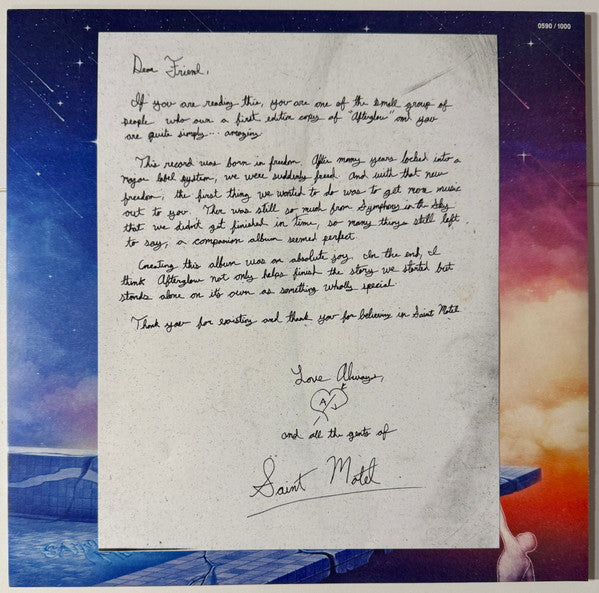 0590 / 1000
Dear Friend,
If you are reading this, you are one of the small group of
people who own a first edition copy of "Afterglow" and you
are quite simply... amazing.
This record was born in freedom. After many years locked into a
major label system, we were suddenly freed. And with that new
freedom, the first thing we wanted to do was to get more music
out to you. There was still so much from Symphony in the Sky
that we didn't get finished in time, so many things still left
to say, a companion album seemed perfect.
Creating this album was an absolute joy. In the end, I
think Afterglow not only helps finish the story we started but
stands alone on its own as something wholly special.
Thank you for existing and thank you for believing in Saint Motel
Love Always,
A
and all the gents of
Saint Motel